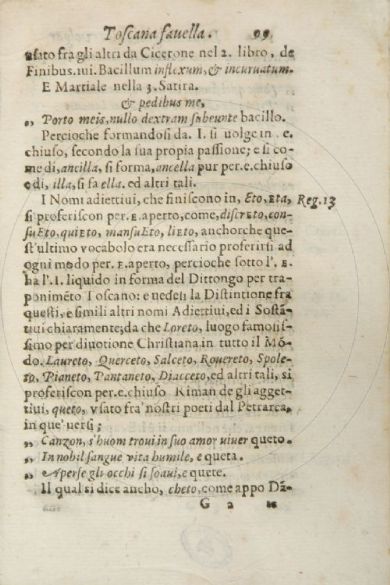 Toscana fauella. 99
vsato fra gli altri da Cicerone nel 2. libro, de
Finibus.iui. Bacillum inflexum, & incuruatum.
E Martiale nella 3. Satira.
& pedibus me,
„ Porto meis, nullo dextram subeunte bacillo.
Percioche formandosi da. I. si uolge in .e.
chiuso, secondo la sua propia passione; e si co-
me di, ancilla, si forma, ancella pur per.e.chiuso
e di, illa, si fa ella. ed altri tali.
I Nomi adiettiui, che finiscono in, Eto, Eta, Reg. 13
si proferiscon per.E.aperto, come, discrEto, con-
suEto, quiEto, mansuEto, liEto, anchorche que
st'ultimo vocabolo era necessario proferirsi ad
ogni modo per.E.aperto, percioche sotto l'.E.
ha l'.I. liquido in forma del Dittongo per tra-
ponimēto Toscano: e uedesi la Distintione fra
questi, e simili altri nomi Adiettiui, ed i Sostā
tiui chiaramente; da che Loreto, luogo famosis-
simo per diuotione Christiana in tutto il Mó-
do. Laureto, Querceto, Salceto, Rouereto, Spole-
to, Pianeto, Pantaneto, Diacceto, ed altri tali, si
proferiscon per.e.chiuso Riman de gli agget-
tiui, queto, vsato fra' nostri poeti dal Petrarca,
in que' uersi;
„ Canzon, s'huom troui in suo amor uiuer queto.
„ In nobil sangue vita humile, e queta.
„ Aperse gli occhi si soaui, e quete.
Il qual si dice ancho, cheto, come appo Dā-
G 2